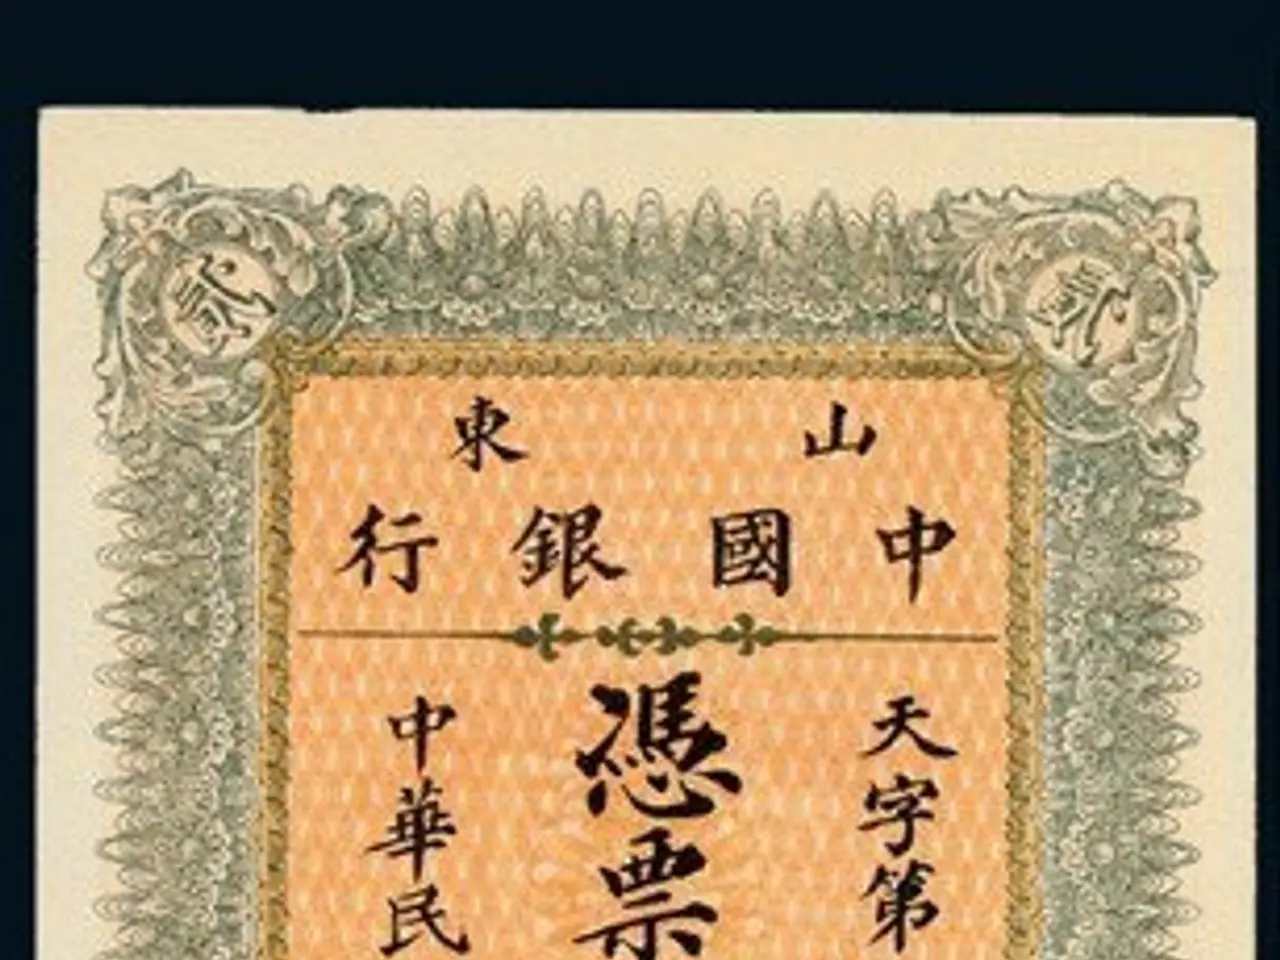 貳 貳
山東
中國銀行
天字第
憑票
中華民